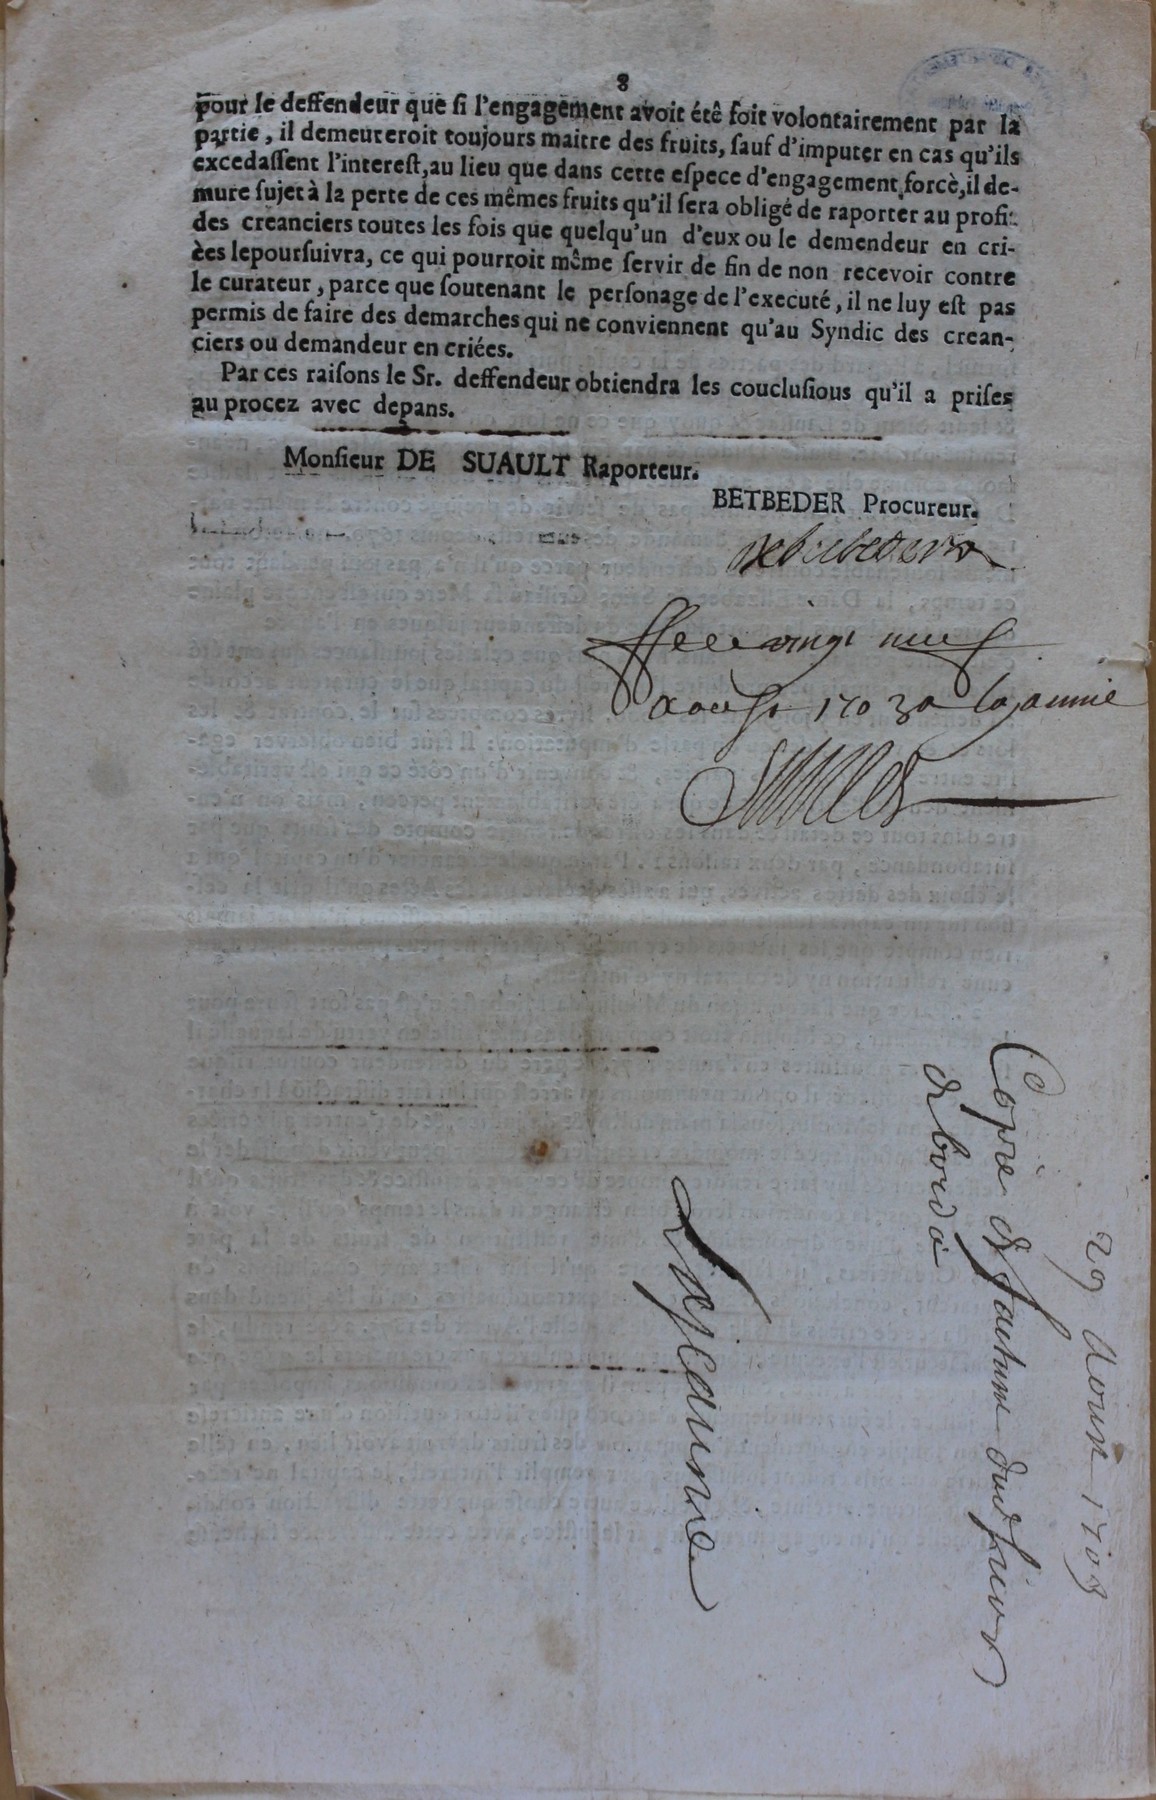 8
pour le deffendeur que si l'engagement avoit étê foit volontairement par la
partie, il demeureroit toujours maitre des fruits, sauf d'imputer en cas qu'ils
excedassent l'interest, au lieu que dans cette espece d'engagement forcè, il de-
mure sujet à la perte de ces mêmes fruits qu'il sera obligé de raporter au profit
des creanciers toutes les fois que quelqu'un d'eux ou le demendeur en cri-
èes lepoursuivra, ce qui pourroit même servir de fin de non recevoir contre
le curateur, parce que soutenant le personage de l'executé, il ne luy est pas
permis de faire des demarches qui ne conviennent qu'au Syndic des crean-
ciers ou demandeur en criées.
Par ces raisons le Sr. deffendeur obtiendra les couclusious qu'il a prises
au procez avec depans.
Monsieur DE SUAULT Raporteur.
BETBEDER Procureur.
vingt neuf
aoust 1703 a
29 Aoust 1703
Copie de factum
de borda
Lajaunie